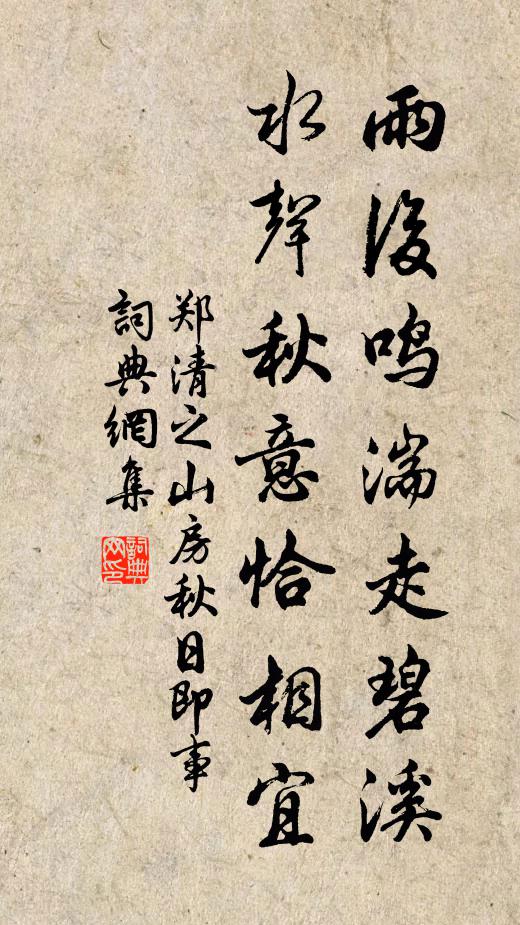 雨後鳴湍走碧溪
水聲秋意恰相宜
郑清之山房秋日即事
詞典網集
詞典网印